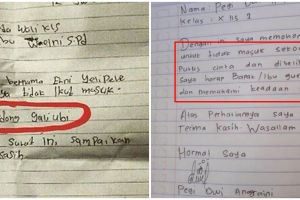 Wali Kls
Spd
bernama Erni Yeli Dele
tidak Ikut masuk
gali ubi
Surat Ini Sampaikan
kasih
Nama
Kelas : X IIS 2
Dengan ini saya memohon
untuk tidak masuk sekolah
Putus cinta dan
Saya harap Bapak/Ibu guru
dan memaklumi keadaan
Atas Perhatiannya saya
Terima Kasih. Wasallam
Hormat Saya
Pegi Dwi Anggraini